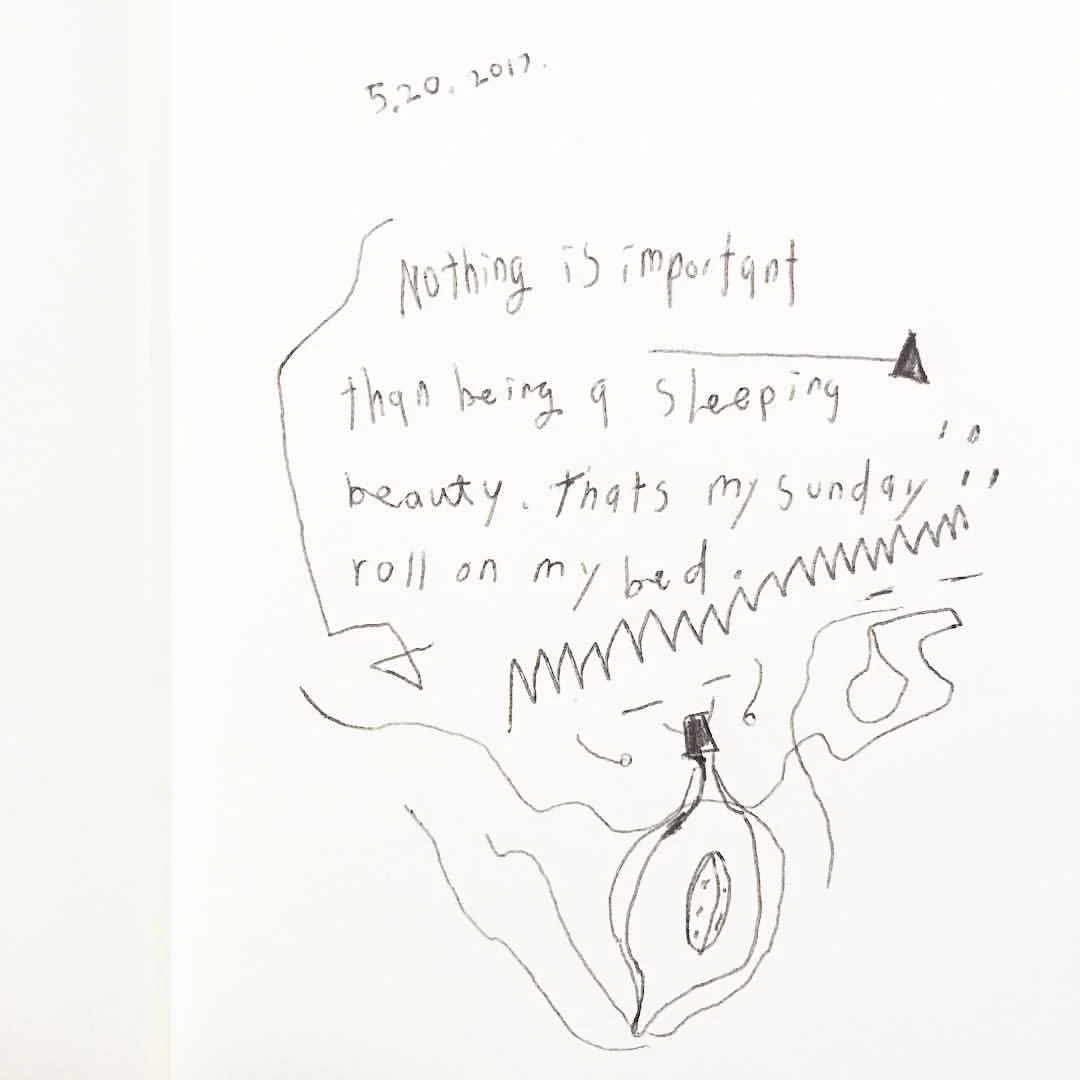 5.20.2017.
Nothing is important
than being a sleeping
beauty. thats my sunday
roll on my bed.